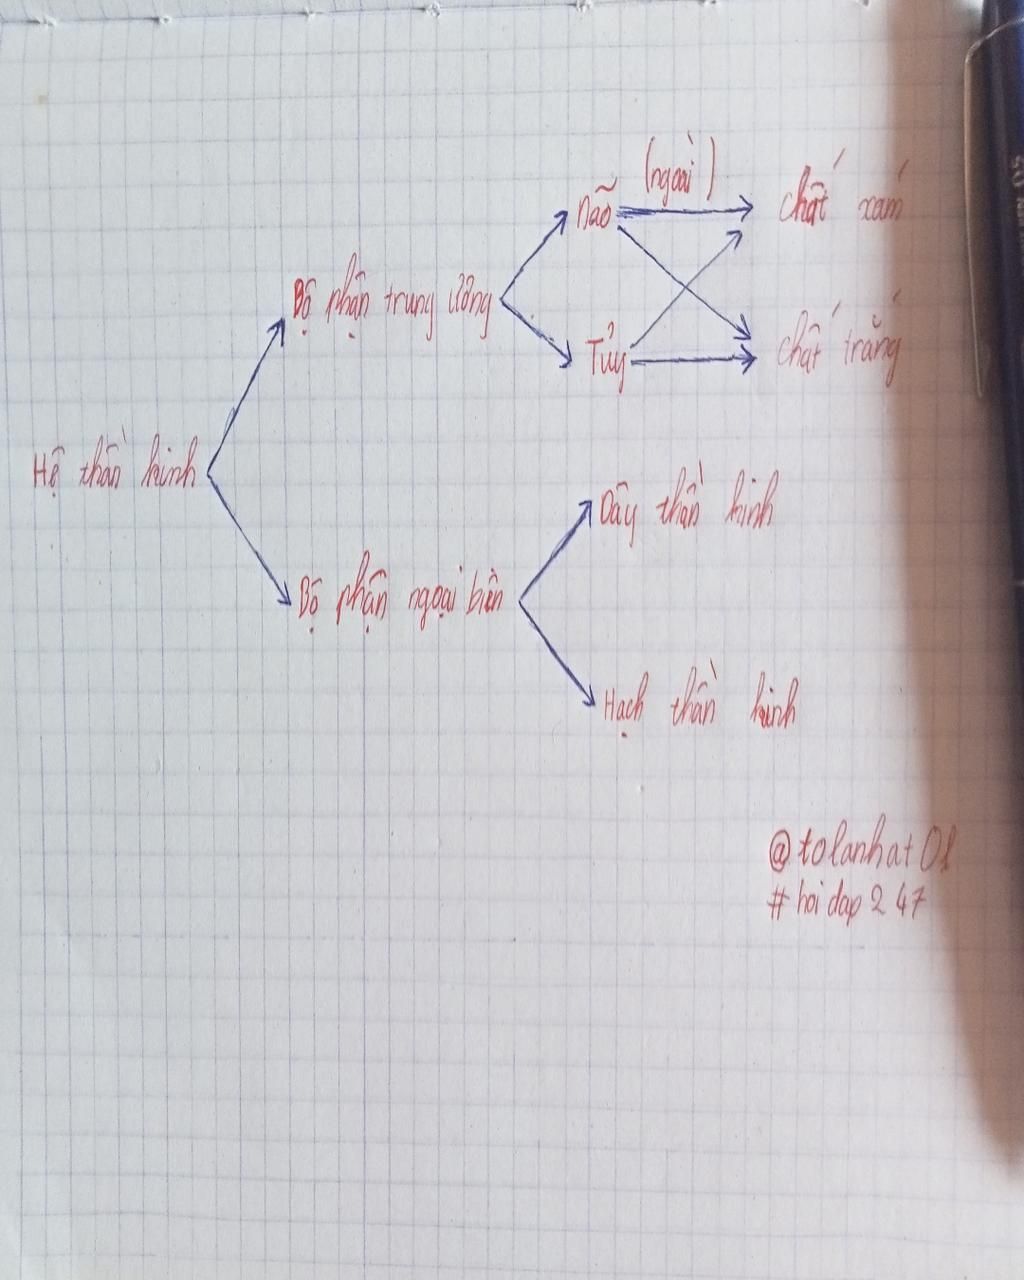 (ngoài)
Não
chất xám
Bộ phận trung ương
Tủy
chất trắng
Hệ thần kinh
Dây thần kinh
Bộ phận ngoại biên
Hạch thần kinh
@tolanhat01
#hoidap247